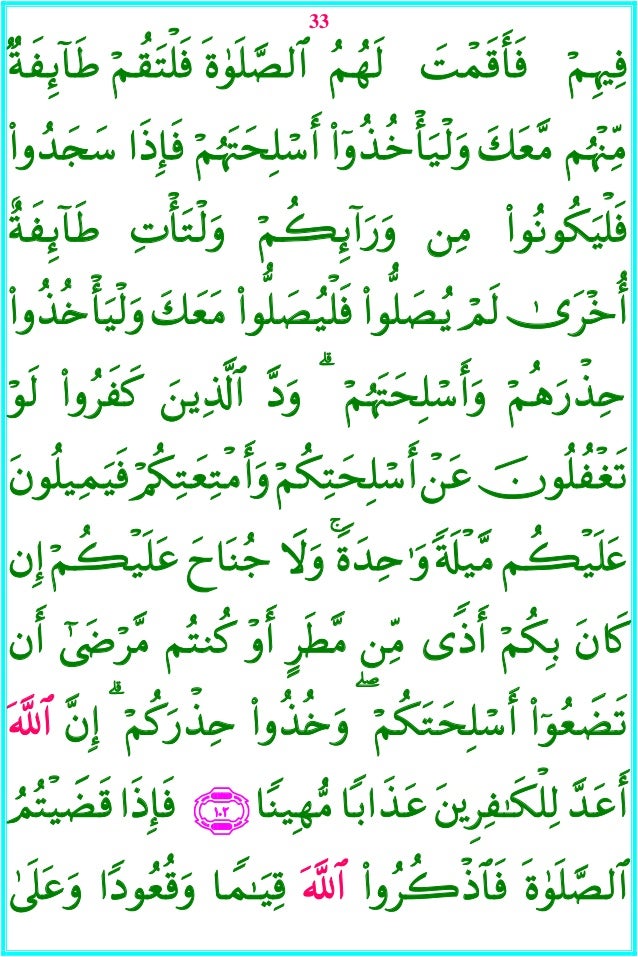 33
فِيهِمْ فَأَقَمْتَ لَهُمُ ٱلصَّلَوٰةَ فَلْتَقُمْ طَآئِفَةٌ
مِّنْهُم مَّعَكَ وَلْيَأْخُذُوٓا۟ أَسْلِحَتَهُمْ فَإِذَا سَجَدُوا۟
فَلْيَكُونُوا۟ مِن وَرَآئِكُمْ وَلْتَأْتِ طَآئِفَةٌ
أُخْرَىٰ لَمْ يُصَلُّوا۟ فَلْيُصَلُّوا۟ مَعَكَ وَلْيَأْخُذُوا۟
حِذْرَهُمْ وَأَسْلِحَتَهُمْ ۗ وَدَّ ٱلَّذِينَ كَفَرُوا۟ لَوْ
تَغْفُلُونَ عَنْ أَسْلِحَتِكُمْ وَأَمْتِعَتِكُمْ فَيَمِيلُونَ
عَلَيْكُم مَّيْلَةً وَٰحِدَةً ۚ وَلَا جُنَاحَ عَلَيْكُمْ إِن
كَانَ بِكُمْ أَذًى مِّن مَّطَرٍ أَوْ كُنتُم مَّرْضَىٰٓ أَن
تَضَعُوٓا۟ أَسْلِحَتَكُمْ ۖ وَخُذُوا۟ حِذْرَكُمْ ۗ إِنَّ ٱللَّهَ
أَعَدَّ لِلْكَـٰفِرِينَ عَذَابًا مُّهِينًا ١٠٢ فَإِذَا قَضَيْتُمُ
ٱلصَّلَوٰةَ فَٱذْكُرُوا۟ ٱللَّهَ قِيَـٰمًا وَقُعُودًا وَعَلَىٰ